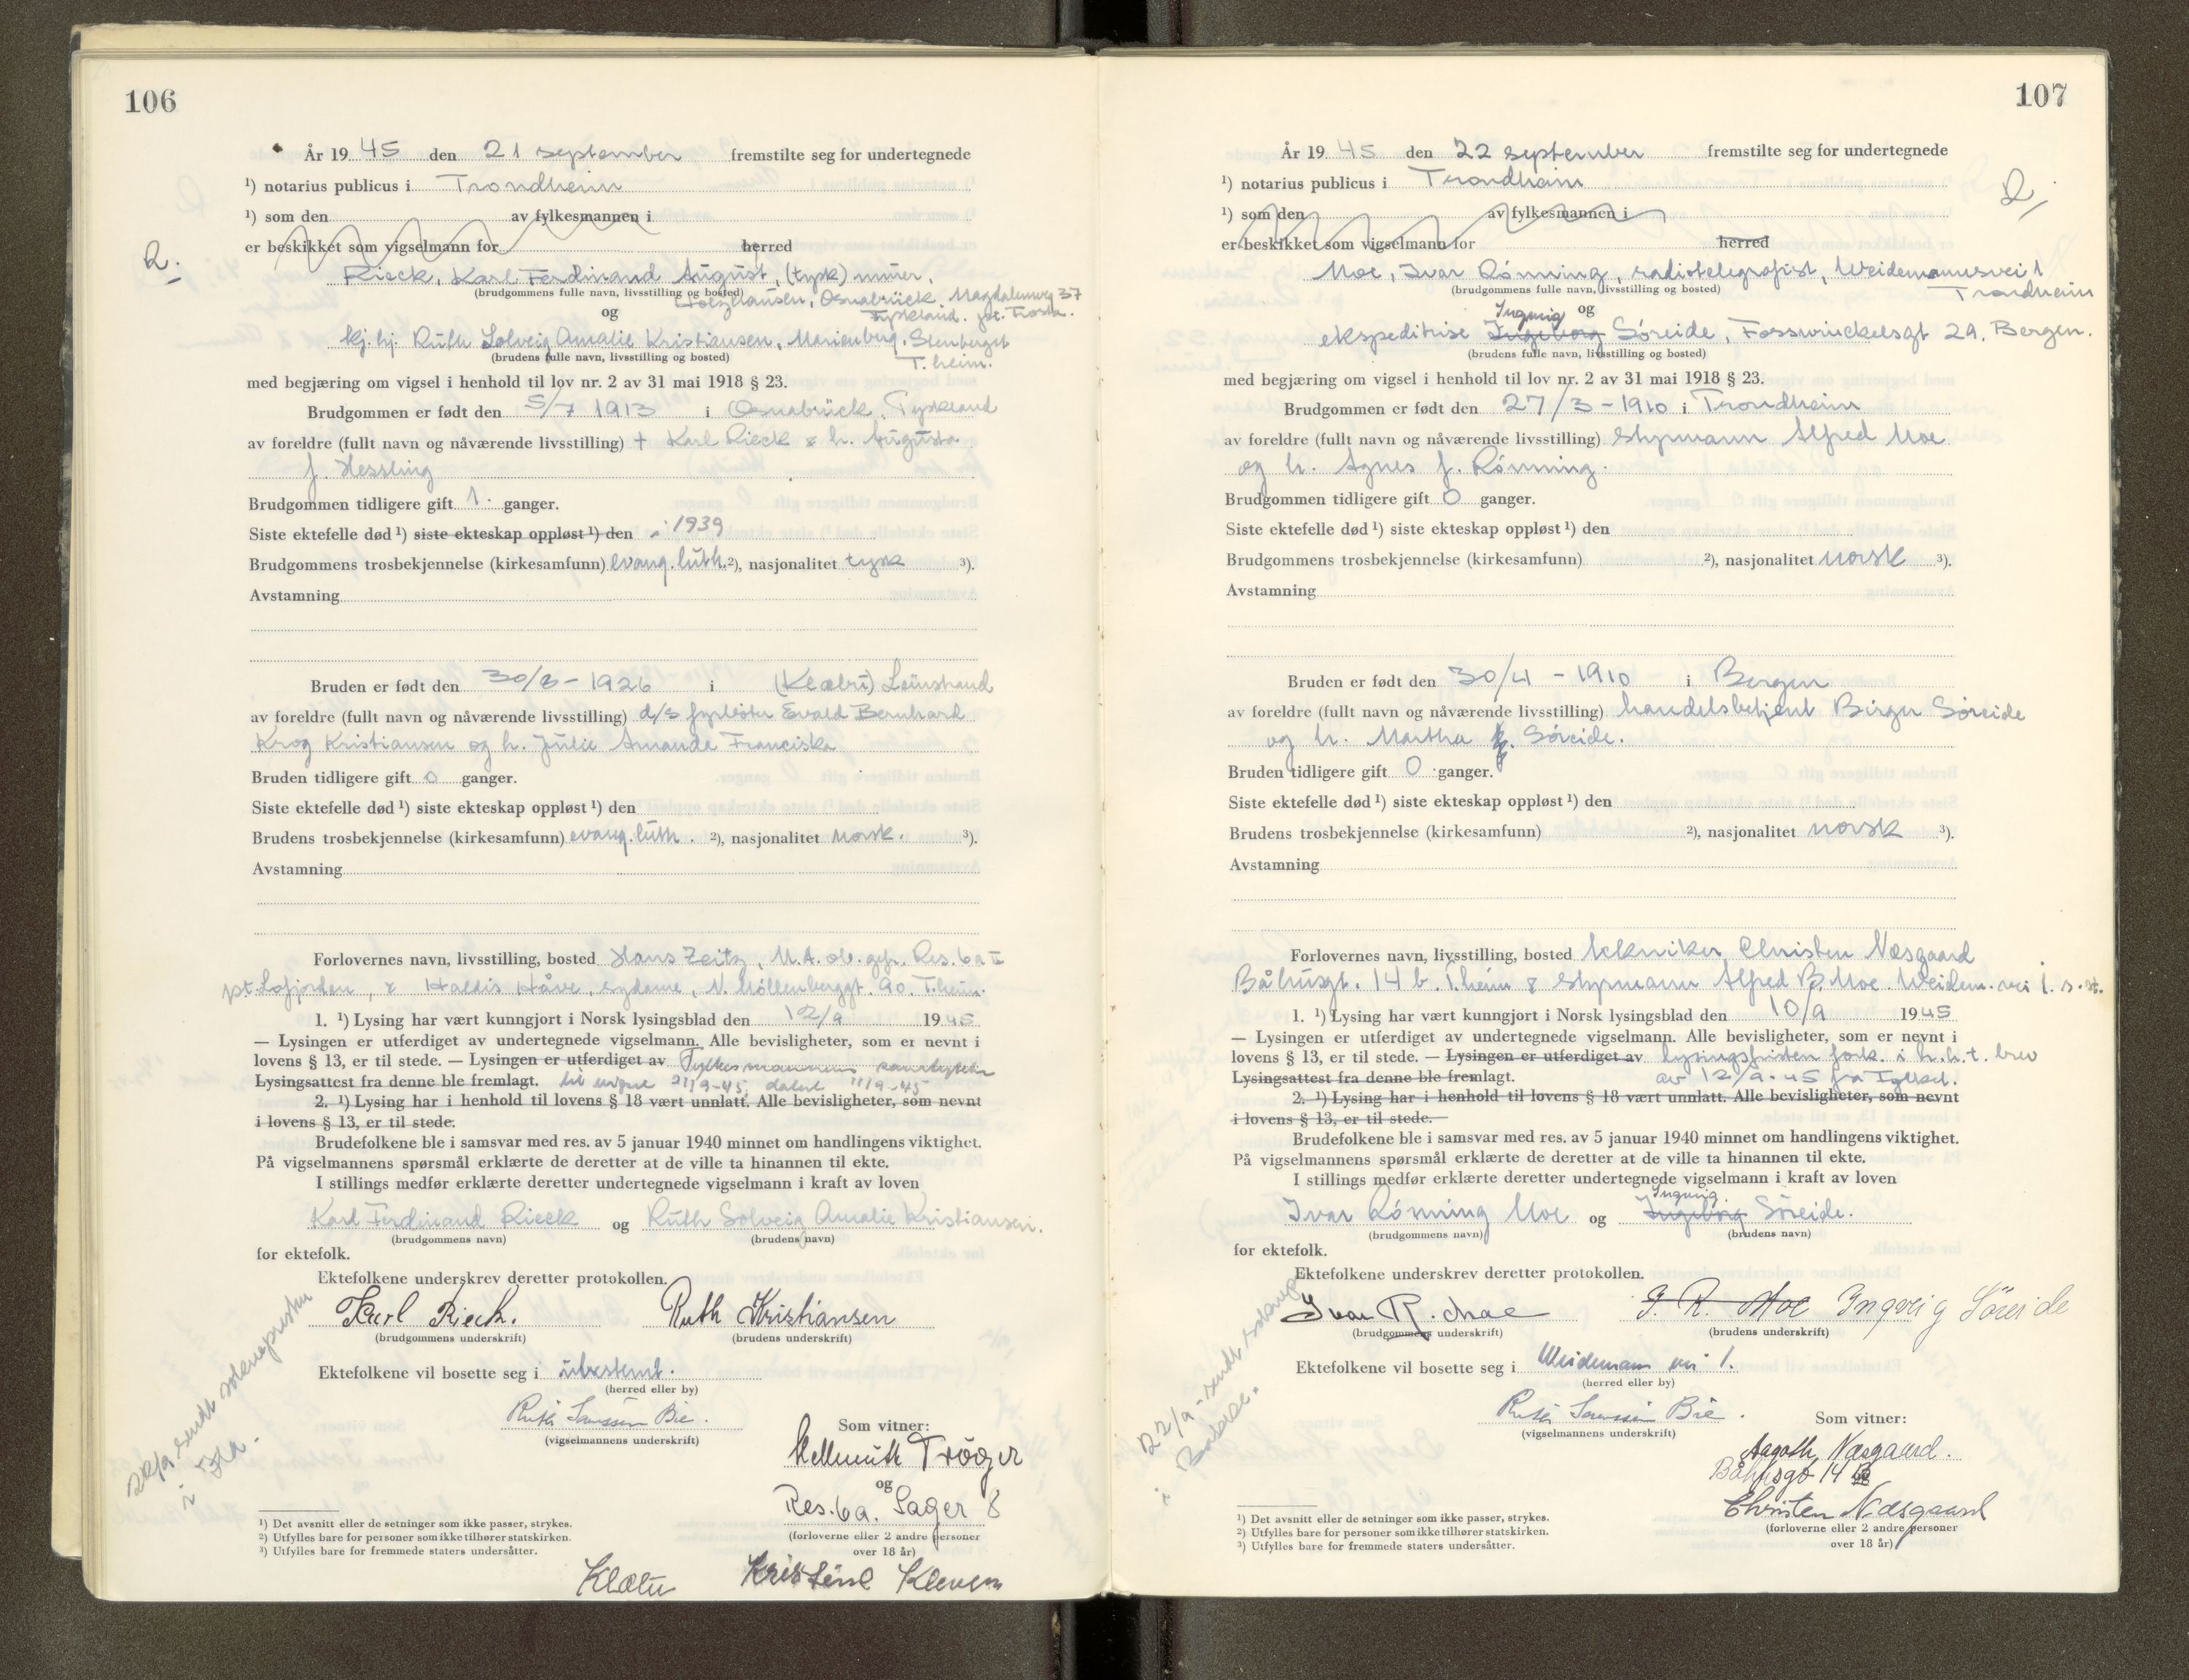 106
År 19 45 den 21 september fremstilte seg for undertegnede
¹) notarius publicus i Trondheim
¹) som den av fylkesmannen i
er beskikket som vigselmann for herred
2.
Rieck, Karl Ferdinand August, (tysk) murer,
(brudgommens fulle navn, livsstilling og bosted)
Holzhausen, Osnabrück, Magdalenweg 37
og
Tyskland. pt.
kj. hj. Ruth Solveig Amalie Kristiansen, Marienberg, Stenberget
(brudens fulle navn, livsstilling og bosted)
T.heim.
med begjæring om vigsel i henhold til lov nr. 2 av 31 mai 1918 § 23.
Brudgommen er født den 5/7 1913 i Osnabrück, Tyskland
av foreldre (fullt navn og nåværende livsstilling) + Karl Rieck & h. Augusta
f. Hessling
Brudgommen tidligere gift 1. ganger.
Siste ektefelle død ¹) siste ekteskap oppløst ¹) den 1939
Brudgommens trosbekjennelse (kirkesamfunn) evang. luth. ²), nasjonalitet tysk ³).
Avstamning
Bruden er født den 30/8 - 1926 i (Klæbu) Leinstrand
av foreldre (fullt navn og nåværende livsstilling) d/s fyrbøter Evald Bernhard
Krog Kristiansen og h. Julie Amanda Franciska
Bruden tidligere gift 0 ganger.
Siste ektefelle død ¹) siste ekteskap oppløst ¹) den
Brudens trosbekjennelse (kirkesamfunn) evang. luth. ²), nasjonalitet norsk. ³).
Avstamning
Forlovernes navn, livsstilling, bosted Hans Zeitz, M.A. ob. gefr. Res. 6a II
pt. Lofjorden, & Haldis Håve, sydame, N. Møllenberggt. 90. T.heim.
1. ¹) Lysing har vært kunngjort i Norsk lysingsblad den 12/9 1945
— Lysingen er utferdiget av undertegnede vigselmann. Alle bevisligheter, som er nevnt i
lovens § 13, er til stede. — Lysingen er utferdiget av Fylkesmannens samtykke
Lysingsattest fra denne ble fremlagt. til vigsel 21/9-45, datert 11/9-45
2. ¹) Lysing har i henhold til lovens § 18 vært unnlatt. Alle bevisligheter, som nevnt
i lovens § 13, er til stede.
Brudefolkene ble i samsvar med res. av 5 januar 1940 minnet om handlingens viktighet.
På vigselmannens spørsmål erklærte de deretter at de ville ta hinannen til ekte.
I stillings medfør erklærte deretter undertegnede vigselmann i kraft av loven
Karl Ferdinand Rieck og Ruth Solveig Amalie Kristiansen.
(brudgommens navn) (brudens navn)
for ektefolk.
Ektefolkene underskrev deretter protokollen.
Karl Rieck. Ruth Kristiansen
(brudgommens underskrift) (brudens underskrift)
Ektefolkene vil bosette seg i ubestemt.
(herred eller by)
22/9 sendt sokneprester
i
Ruth Bie.
(vigselmannens underskrift)
Som vitner:
Hellmuth Tröger
og
Res. 6a. Lager 8
(forloverne eller 2 andre personer
over 18 år)
Klæbu Kristine Kleven
¹) Det avsnitt eller de setninger som ikke passer, strykes.
²) Utfylles bare for personer som ikke tilhører statskirken.
³) Utfylles bare for fremmede staters undersåtter.
107
År 19 45 den 22 september fremstilte seg for undertegnede
¹) notarius publicus i Trondheim
2.
¹) som den av fylkesmannen i
er beskikket som vigselmann for herred
Moe, Ivar Rønning, radiotelegrafist, Weidemannsvei 1
(brudgommens fulle navn, livsstilling og bosted)
Trondheim
og
Ingveig
ekspeditrise Ingeborg Søreide, Fosswinckelsgt 29. Bergen.
(brudens fulle navn, livsstilling og bosted)
med begjæring om vigsel i henhold til lov nr. 2 av 31 mai 1918 § 23.
Brudgommen er født den 27/3 - 1910 i Trondheim
av foreldre (fullt navn og nåværende livsstilling) styrmann Alfred Moe
og h. Agnes f. Rønning.
Brudgommen tidligere gift 0 ganger.
Siste ektefelle død ¹) siste ekteskap oppløst ¹) den
Brudgommens trosbekjennelse (kirkesamfunn) ²), nasjonalitet norsk ³).
Avstamning
Bruden er født den 30/4 - 1910 i Bergen
av foreldre (fullt navn og nåværende livsstilling) handelsbetjent Birger Søreide
og h. Martha f. Søreide.
Bruden tidligere gift 0 ganger.
Siste ektefelle død ¹) siste ekteskap oppløst ¹) den
Brudens trosbekjennelse (kirkesamfunn) ²), nasjonalitet norsk ³).
Avstamning
Forlovernes navn, livsstilling, bosted tekniker Christen Næsgaard
Båhusgt. 14 b. T.heim & styrmann Alfred B. Moe. Weidem. vei 1. s. st.
1. ¹) Lysing har vært kunngjort i Norsk lysingsblad den 10/9 1945
— Lysingen er utferdiget av undertegnede vigselmann. Alle bevisligheter, som er nevnt i
lovens § 13, er til stede. — Lysingen er utferdiget av lysingsfristen fork. i h.h.t. brev
Lysingsattest fra denne ble fremlagt. av 12/9-45 fra Fylkesm.
2. ¹) Lysing har i henhold til lovens § 18 vært unnlatt. Alle bevisligheter, som nevnt
i lovens § 13, er til stede.
Brudefolkene ble i samsvar med res. av 5 januar 1940 minnet om handlingens viktighet.
På vigselmannens spørsmål erklærte de deretter at de ville ta hinannen til ekte.
I stillings medfør erklærte deretter undertegnede vigselmann i kraft av loven
Ingveig.
Ivar Rønning Moe og Ingeborg Søreide.
(brudgommens navn) (brudens navn)
for ektefolk.
Ektefolkene underskrev deretter protokollen.
Ivar R. Moe I. R. Moe Ingveig Søreide
(brudgommens underskrift) (brudens underskrift)
Ektefolkene vil bosette seg i Weidemann vei 1.
(herred eller by)
22/9 - sendt
i
Ruth Bie.
(vigselmannens underskrift)
Som vitner:
Aagoth Næsgaard.
Båhusgt 14 B
Christen Næsgaard
(forloverne eller 2 andre personer
over 18 år)
¹) Det avsnitt eller de setninger som ikke passer, strykes.
²) Utfylles bare for personer som ikke tilhører statskirken.
³) Utfylles bare for fremmede staters undersåtter.